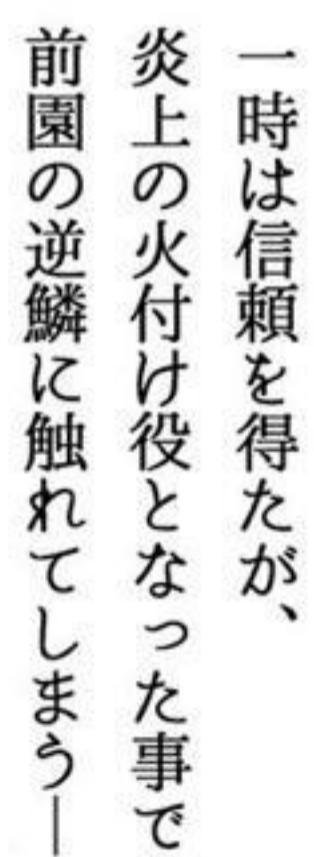 一時は信頼を得たが、
炎上の火付け役となった事で
前園の逆鱗に触れてしまう―